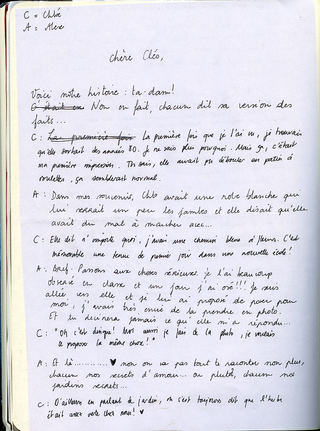 C = Chloé
A = Alexe
Chère Cléo,
Voici notre histoire : ta-dam!
C'était un Non en fait, chacun dit sa version des
faits...
C: La première fois La première fois que je l'ai vu, je trouvais
qu'elle sortait des années 80. Je ne sais plus pourquoi. Mais ça, c'était
ma première impression. Tu sais, elle aurait pu débouler en patin à
roulettes, ça semblerait normal.
A: Dans mes souvenirs, Chlo avait une robe blanche qui
lui serrait un peu les jambes et elle disait qu'elle
avait du mal à marcher avec...
C: Elle dit n'importe quoi, j'avais une chemise bleue à fleurs. C'est
mémorable une tenue de premier jour dans une nouvelle école!
A: Bref. Passons aux choses sérieuses. Je l'ai beaucoup
observé en classe et un jour j'ai osé!!! Je suis
allée vers elle et je lui ai proposé de poser pour
moi, j'avais très envie de la prendre en photo.
Et tu devineras jamais ce qu'elle m'a répondu...
C: "Oh c'est dingue! Moi aussi je fais de la photo, je voulais
te proposer la même chose!"
A: Et là.......... ♥ non on va pas tout te raconter non plus,
chacun nos secrets d'amour... ou plutôt, chacun nos
jardins secrets...
C: D'ailleurs en parlant de jardin, on s'est toujours dit que l'herbe
était verte chez nous! ♥